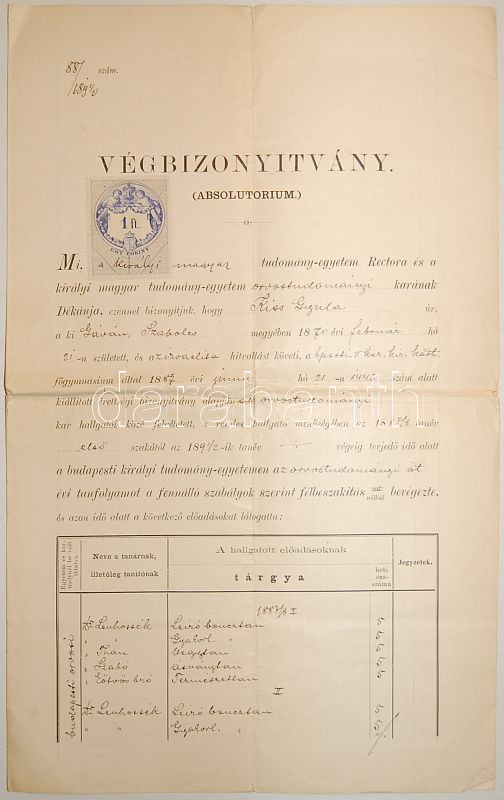 88/ szám.
/189½
VÉGBIZONYITVÁNY.
(ABSOLUTORIUM.)
1 ft.
EGY FORINT
Mi, a királyi magyar tudomány-egyetem Rectora és a
királyi magyar tudomány-egyetem orvostudományi karának
Dékánja, ezennel bizonyítjuk, hogy Kiss Gyula úr,
a ki Gáván, Szabolcs megyében 1870 évi február hó
21-n született, és az izraelita hitvallást követi, a bpesti V ker. kir. kath.
főgymnasium által 1887 évi junius hó 21-n 144 szám alatt
kiállított érettségi bizonyítvány alapján az orvostudományi
kar hallgatói közé fölvétetett, rendes hallgató minőségében az 1887/8 tanév
első szakától az 189½-ik tanév végeig terjedő idő alatt
a budapesti királyi tudomány-egyetemen az orvostudományi öt
évi tanfolyamot a fennálló szabályok szerint félbeszakítás nélkül bevégezte,
és azon idő alatt a következő előadásokat látogatta:
Egyetem és kar, melynél be volt iktatva
Neve a tanárnak, illetőleg tanítónak
A hallgatott előadásoknak
tárgya
heti óraszáma
Jegyzetek.
budapesti orvosi
1887/8 I
Dr Lenhossék Leiró boncztan 5
" " Gyakorl. " 5
" Than Vegytan 5
" Szabó Ásványtan 5
" Eötvös bró Természettan 5
II
Dr Lenhossék Leiró boncztan 5
" " Gyakorl. " 5
darabanth